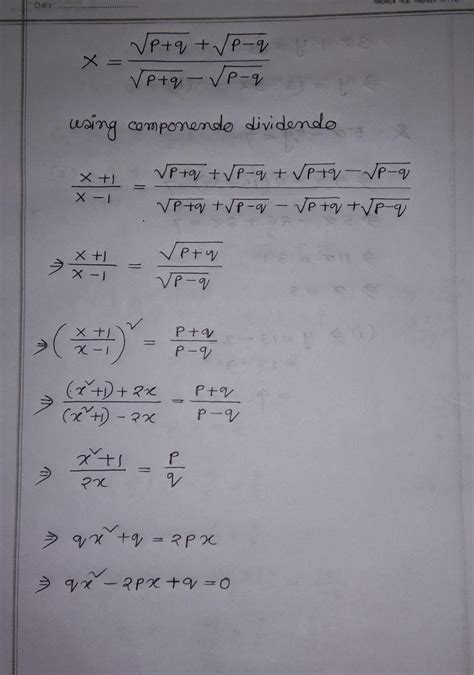 Data
x = (√(p+q) + √(p-q)) / (√(p+q) - √(p-q))
using componendo dividendo
(x+1)/(x-1) = (√(p+q) + √(p-q) + √(p+q) - √(p-q)) / (√(p+q) + √(p-q) - √(p+q) + √(p-q))
⇒ (x+1)/(x-1) = √(p+q) / √(p-q)
⇒ ((x+1)/(x-1))² = (p+q)/(p-q)
⇒ ((x²+1)+2x) / ((x²+1)-2x) = (p+q)/(p-q)
⇒ (x²+1)/(2x) = p/q
⇒ qx²+q = 2px
⇒ qx²-2px+q=0